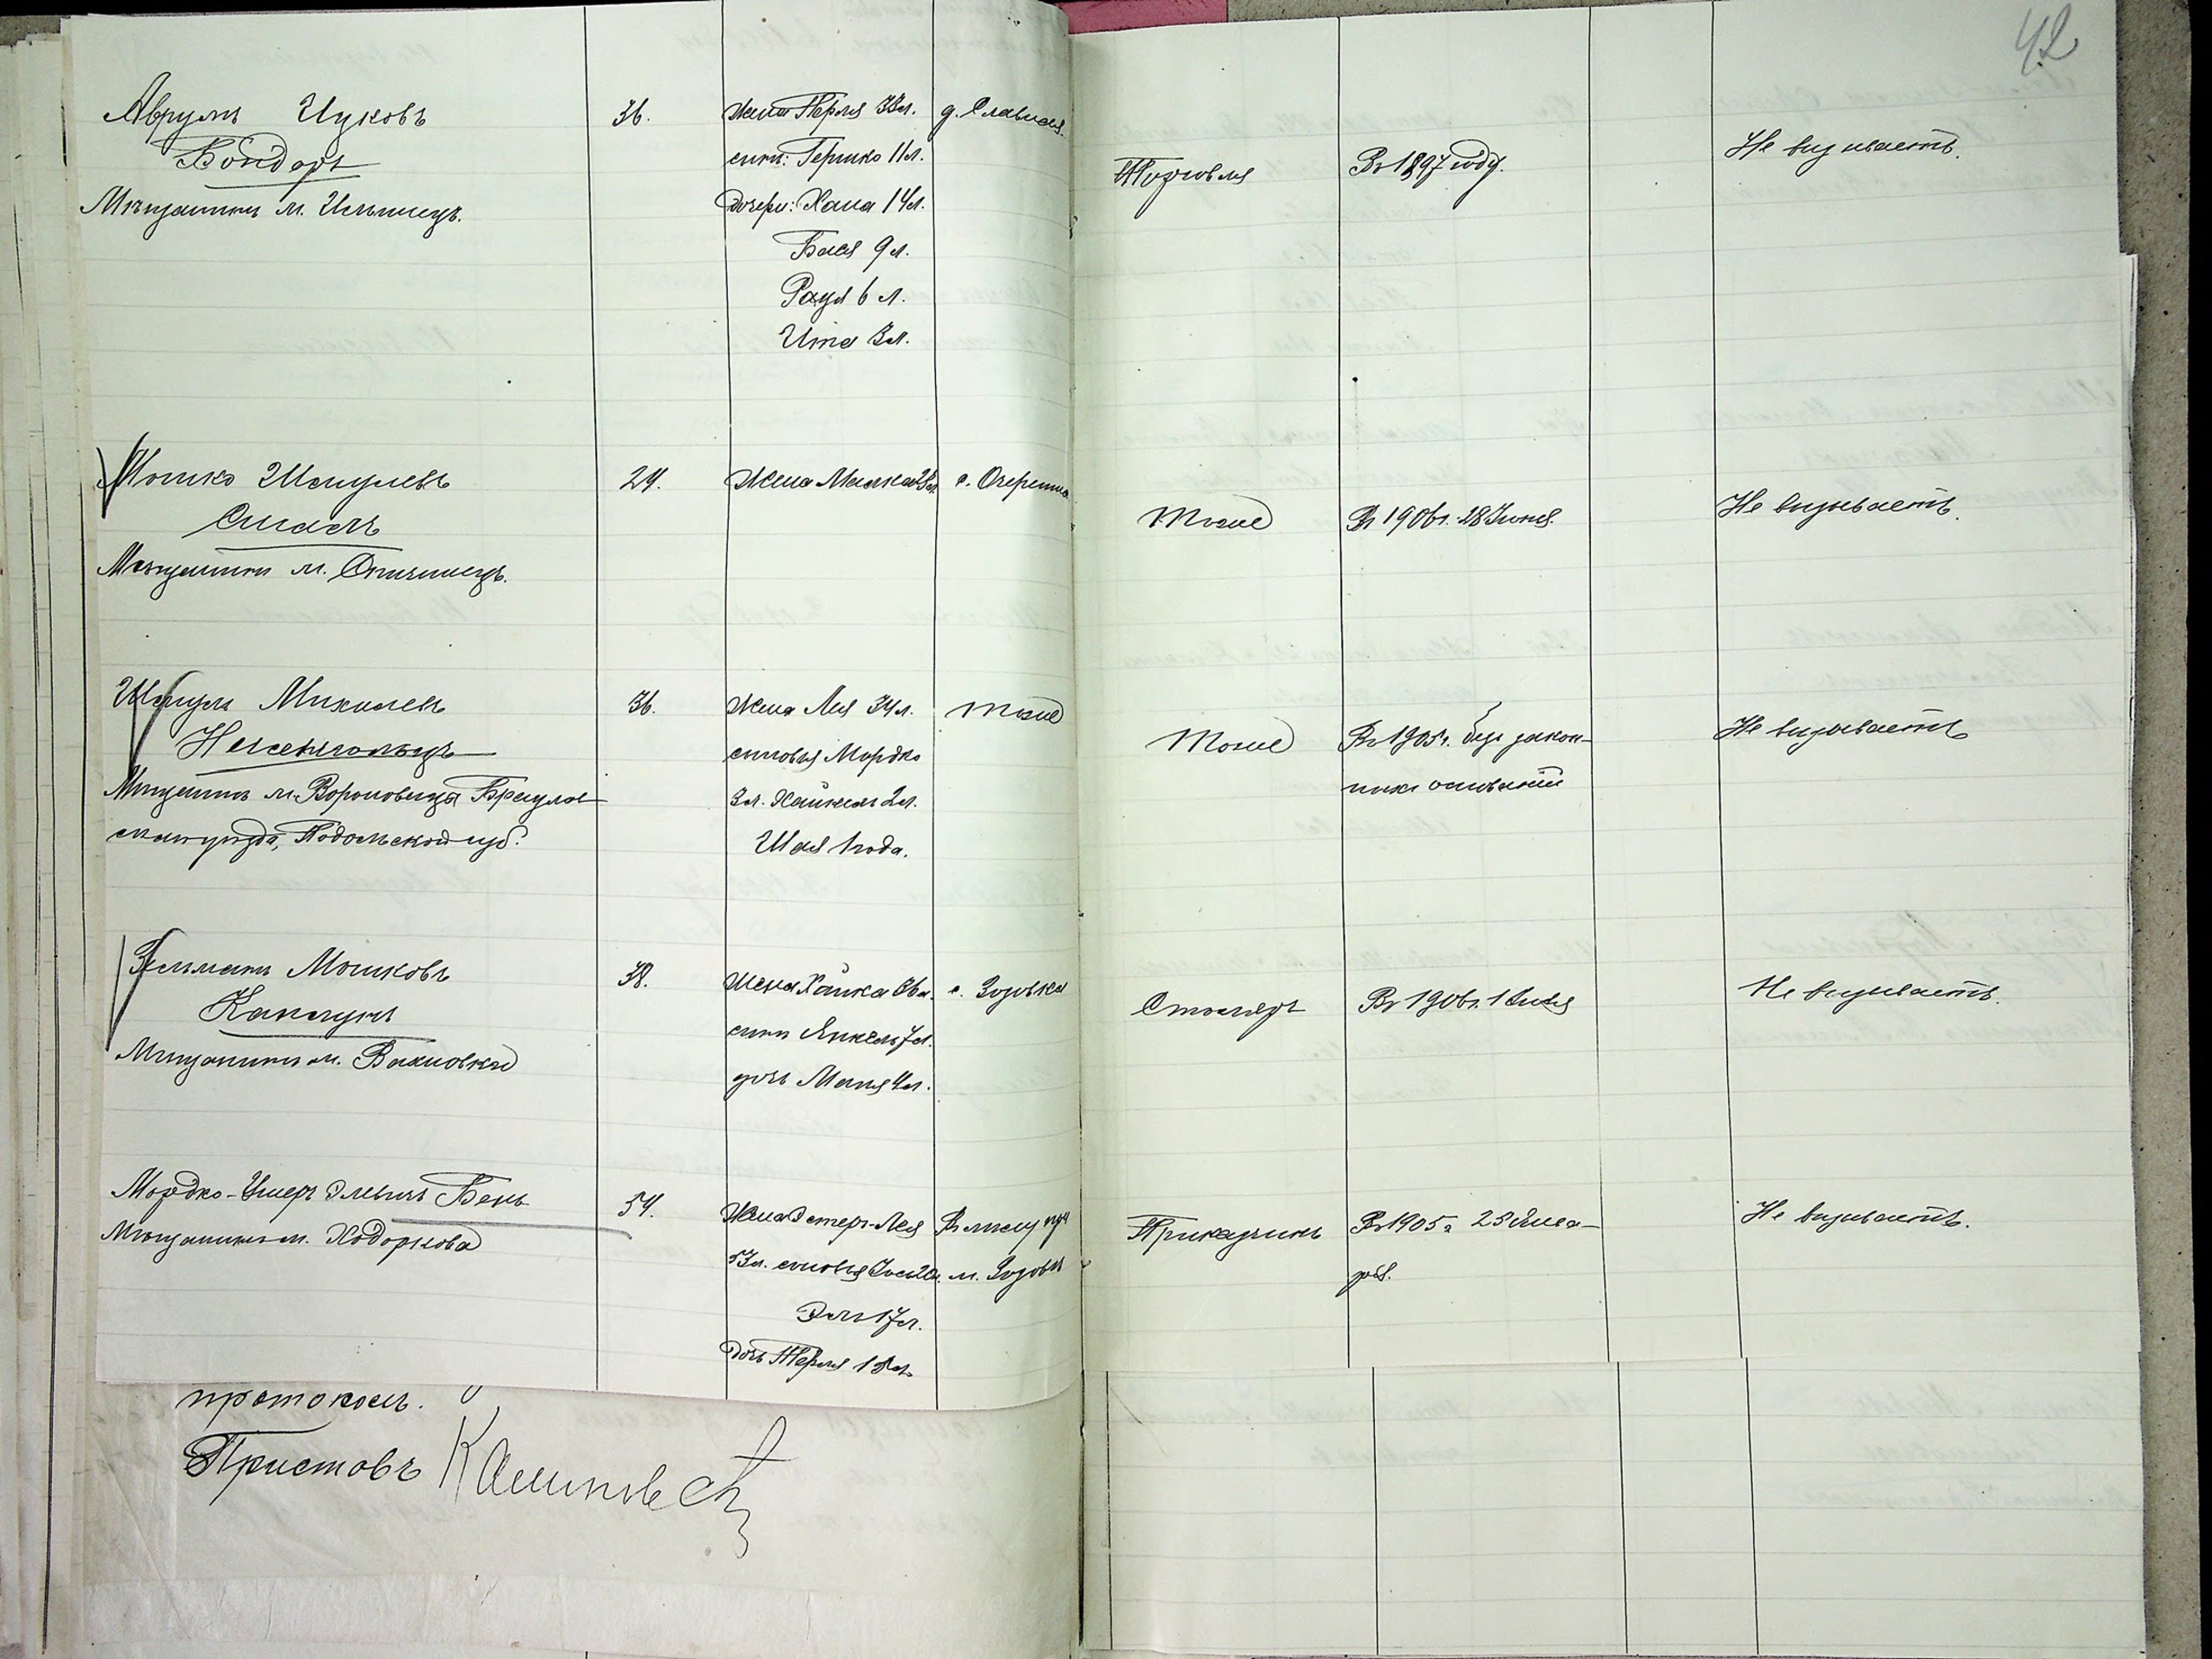 42
Аврумъ Ицковъ
Бондаръ
Мѣщанинъ м. Ильинецъ.
36.
Жена Перля 33 л.
сынъ: Гершко 11 л.
Дочери: Хана 14 л.
Бася 9 л.
Рауля 6 л.
Ита 3 л.
д. Славная
Торговля
Въ 1897 году.
Не вызываетъ.
Мошко Шмулевъ
Спаль
Мѣщанинъ м. Спичинецъ.
24.
Жена Малка
с. Очеретна
Тоже
Въ 1906 г. 28 Іюня.
Не вызываетъ.
Шмуль Михилевъ
Мѣщанинъ м. Вороновица Брацлав-
скаго уѣзда, Подольской губ.
36.
Жена Лея 34 л.
сыновья Мордко
3 л. Хаимъ 2 л.
Шая 1 года.
тоже
Тоже
Въ 1905 г. безъ закон-
ныхъ основаній
Не вызываетъ
Зельманъ Мошковъ
Каплунъ
Мѣщанинъ м. Вахновки
38.
Жена Хайка
сынъ Янкель 7 л.
дочь Маня 4 л.
с. Зозовка
Столяръ
Въ 1906 г. 1 Іюля
Не вызываетъ.
Мордко-Ушеръ Эльевъ Бень
Мѣщанинъ м. Ходоркова
54.
Жена Эстеръ-Лея
53 л. сыновья Іось 20 л.
Эля 17 л.
Дочь Перля 18 л.
м. Зозовъ
Приказчикъ
Въ 1905 г. 25 Янва-
ря.
Не вызываетъ.
протоколъ.
Приставъ